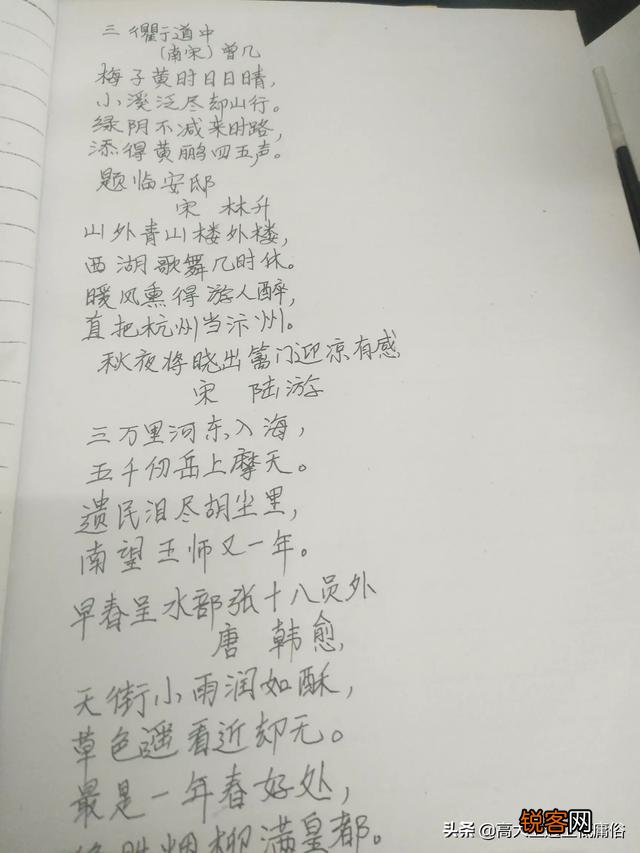 三 衢道中
(南宋)曾几
梅子黄时日日晴,
小溪泛尽却山行。
绿阴不减来时路,
添得黄鹂四五声。
题临安邸
宋 林升
山外青山楼外楼,
西湖歌舞几时休。
暖风熏得游人醉,
直把杭州当汴州。
秋夜将晓出篱门迎凉有感
宋 陆游
三万里河东入海,
五千仞岳上摩天。
遗民泪尽胡尘里,
南望王师又一年。
早春呈水部张十八员外
唐 韩愈,
天街小雨润如酥,
草色遥看近却无。
最是一年春好处,
绝胜烟柳满皇都。
头条 @高大 庸俗
锐客网